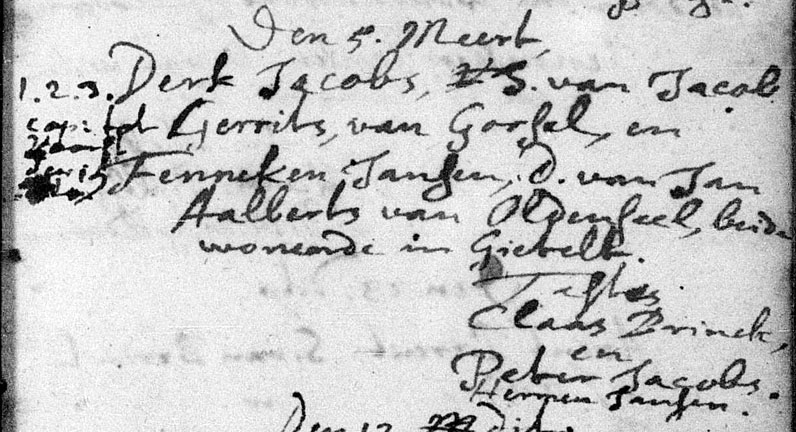 Den 5. Meert,
1.2.3. Derk Jacobs, S. van Jacob
Gerrits, van Gorssel, en
Fenneken Jansen, D. van Jan
Aalberts van Oldenseel, beide
wonende in Gietelt.
Testes
Claas Brinck,
en
Peter Jacobs.
Hermen Jansen.
Den 12